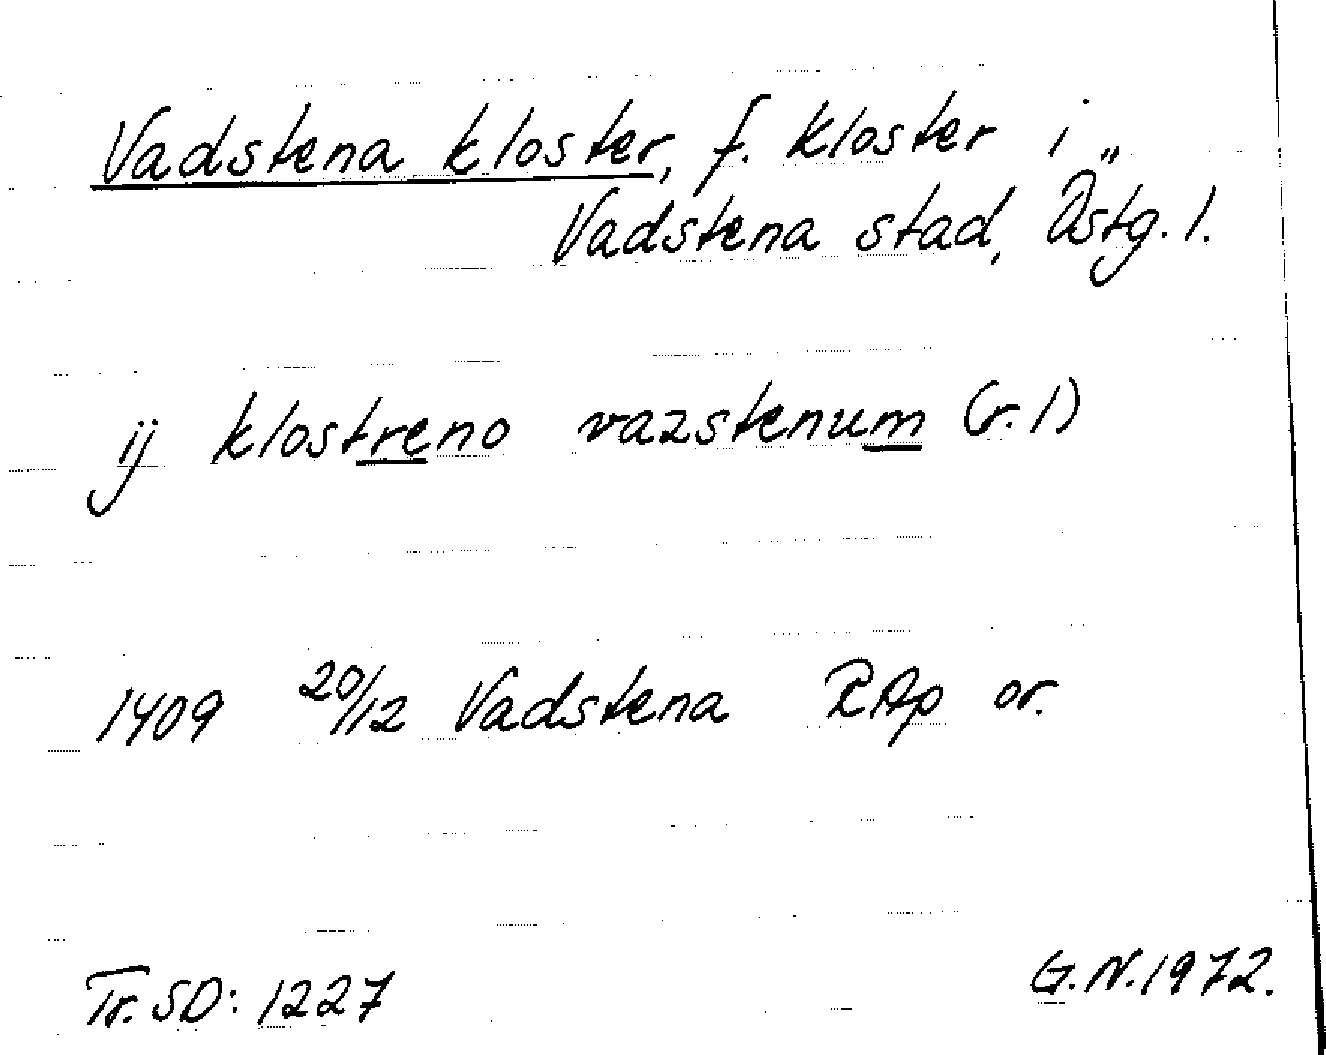 Vadstena kloster, f. kloster i
Vadstena stad, Östg. l.
ij klostreno vazstenum (r. 1)
1409 20/12 Vadstena RAp or.
Tr. SD: 1227
G.N. 1972.